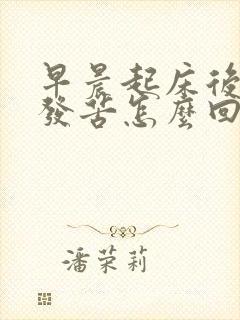 早晨起床後
發苦怎麼回
潘荣莉